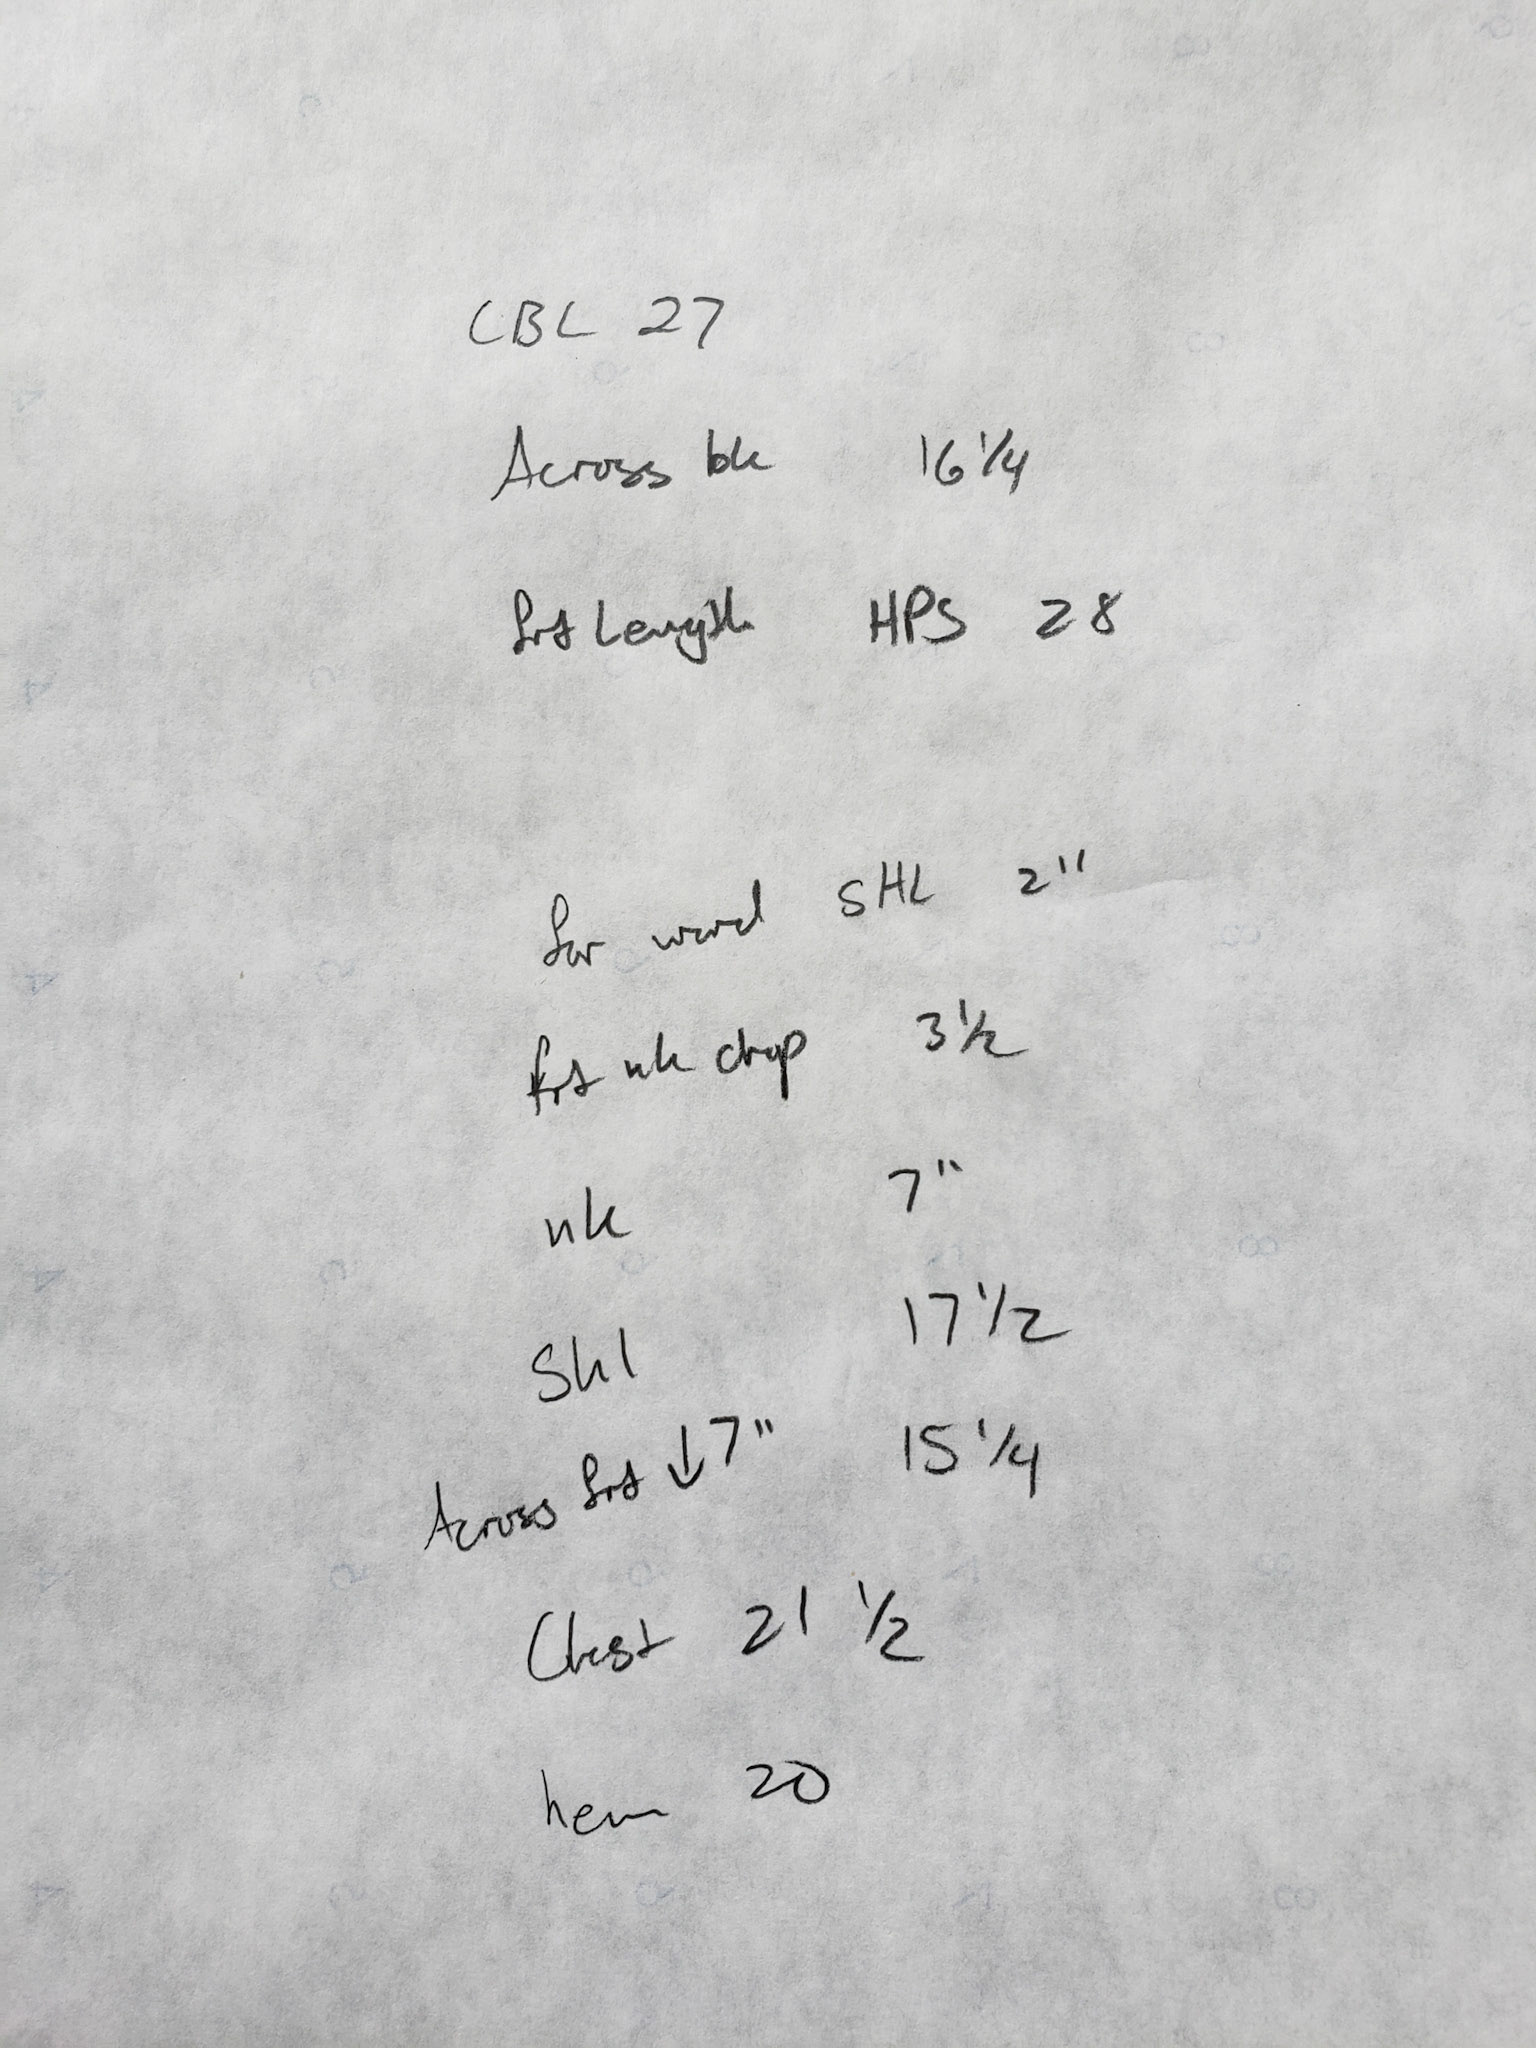 CBL 27
Across bk 16 1/4
frt Length HPS 28
for ward SHL 2"
frt nk drop 3 1/2
nk 7"
Shl 17 1/2
Across frt ↓ 7" 15 1/4
Chest 21 1/2
hem 20